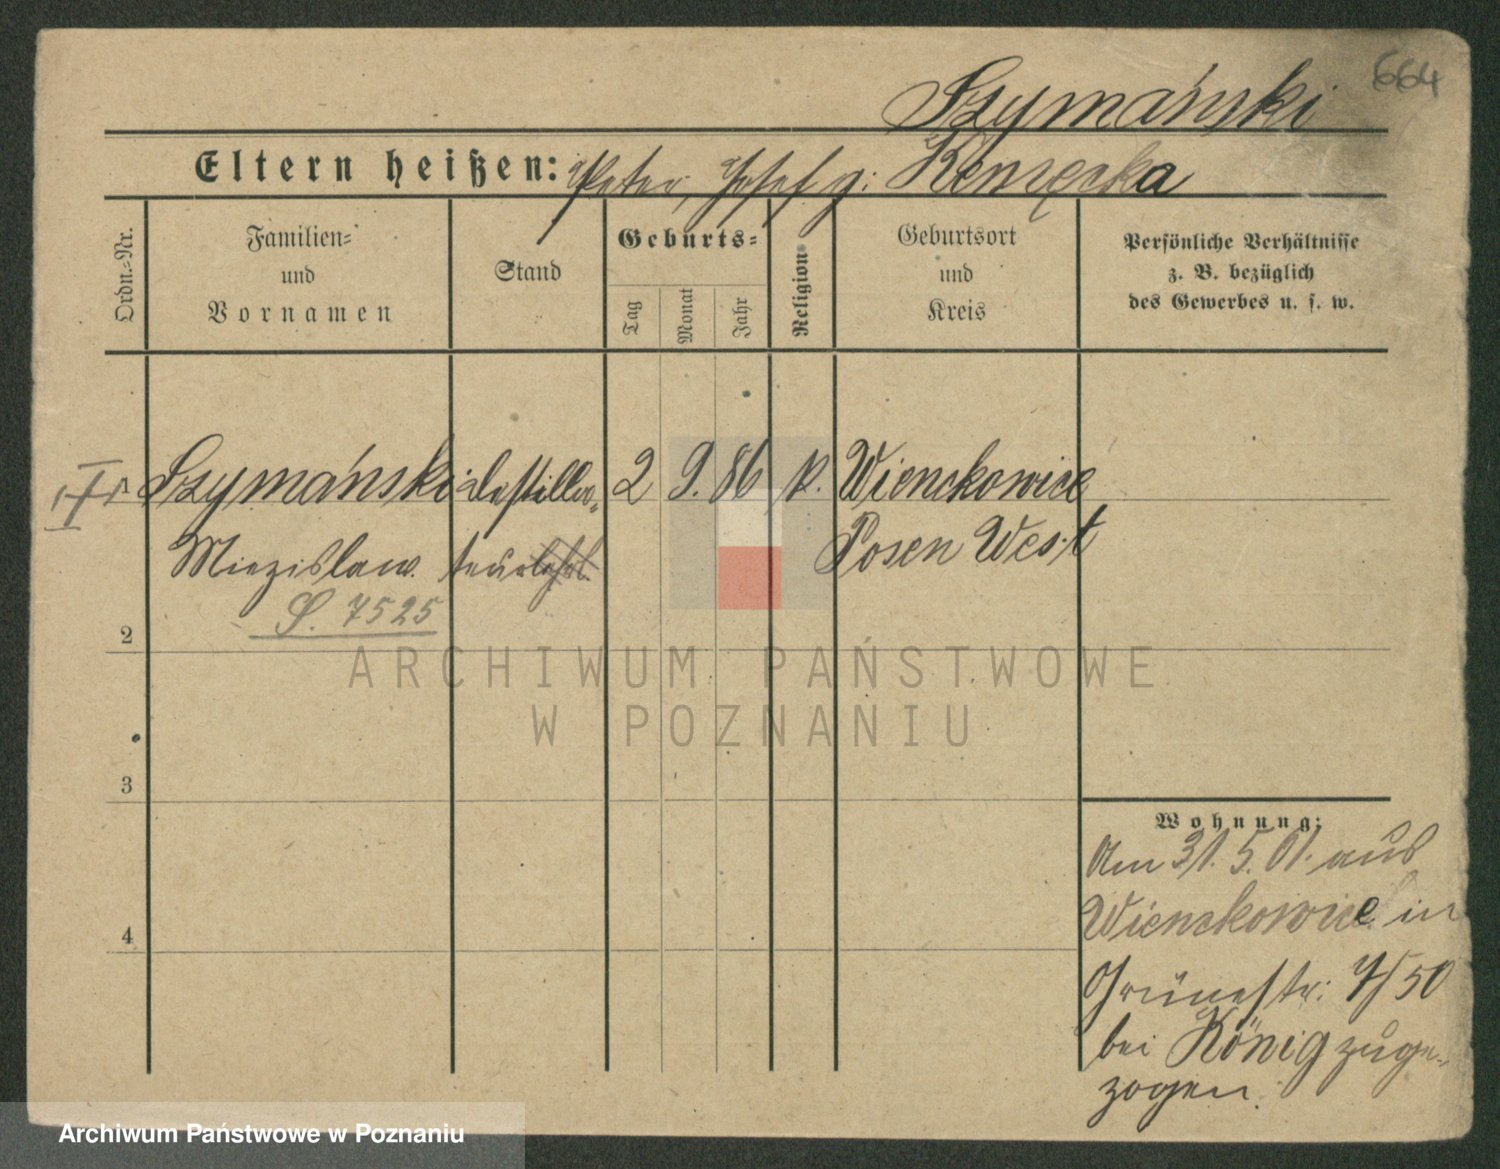 664
Szymański
Eltern heißen: Peter, Josefa g: Kemzęcka
Ordn.-Nr.
Familien-
und
Vornamen
Stand
Geburts-
Tag
Monat
Jahr
Religion
Geburtsort
und
Kreis
Persönliche Verhältnisse
z. B. bezüglich
des Gewerbes u. s. w.
Szymański destilla- 2 9. 86 k. Wienckowice
Miezislaw. teur Posen West
S. 7525
2
3
4
ARCHIWUM PAŃSTWOWE
W POZNANIU
Wohnung:
Am 31. 5. 01. aus
Wienckowice in
Grünestr: 7/50
bei König zuge-
zogen.
Archiwum Państwowe w Poznaniu